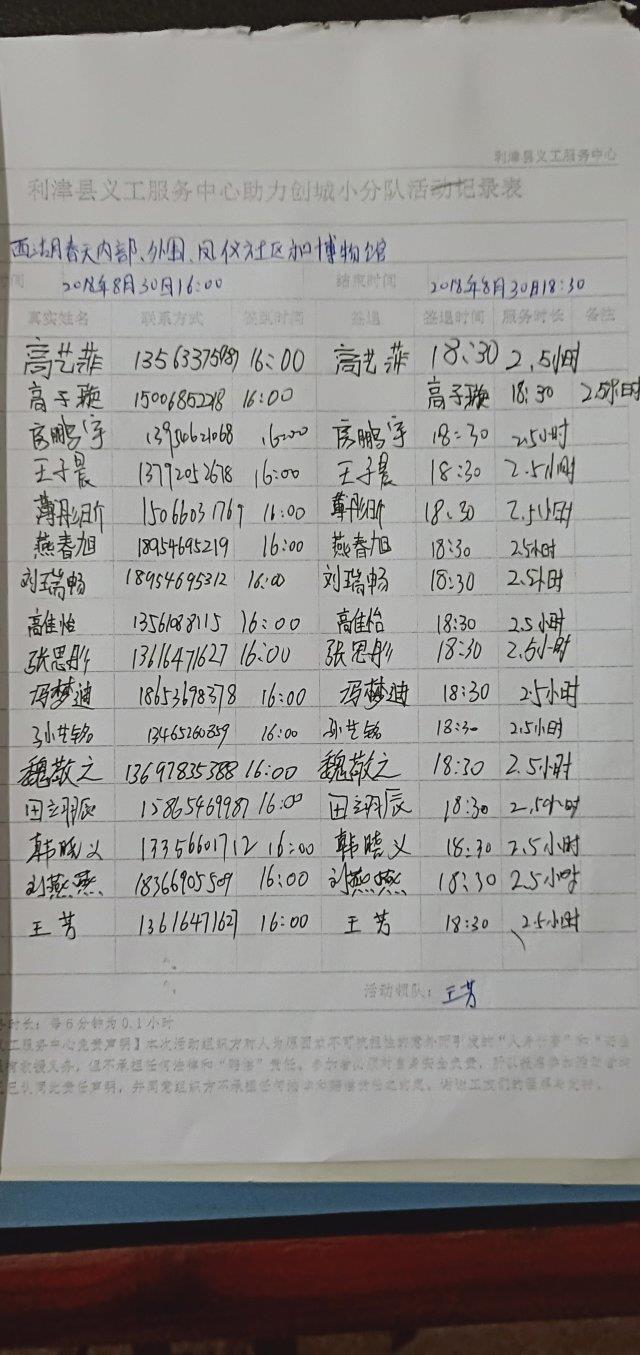 利津县义工服务中心
利津县义工服务中心助力创城小分队活动记录表
西湖春天内部、外围、凤仪社区和博物馆
时间 2018年8月30日16:00 结束时间 2018年8月30日18:30
真实姓名 联系方式 签到时间 签退 签退时间 服务时长 备注
高艺菲 13563375087 16:00 高艺菲 18:30 2.5小时
高子璇 15006852218 16:00 高子璇 18:30 2.5小时
房鹏宇 13954621068 16:00 房鹏宇 18:30 2.5小时
王子晨 13792052678 16:00 王子晨 18:30 2.5小时
15066031769 16:00 18:30 2.5小时
燕春旭 18954695219 16:00 燕春旭 18:30 2.5小时
刘瑞畅 18954695312 16:00 刘瑞畅 18:30 2.5小时
高佳怡 13561088115 16:00 高佳怡 18:30 2.5小时
张思彤 13616471627 16:00 张思彤 18:30 2.5小时
冯梦迪 18653698378 16:00 冯梦迪 18:30 2.5小时
孙艺铭 13465260859 16:00 孙艺铭 18:30 2.5小时
魏敬之 13697835388 16:00 魏敬之 18:30 2.5小时
田翊辰 15865469987 16:00 田翊辰 18:30 2.5小时
韩晓义 13356601712 16:00 韩晓义 18:30 2.5小时
刘燕燕 18366905509 16:00 刘燕燕 18:30 2.5小时
王芳 13616471627 16:00 王芳 18:30 2.5小时
活动领队：王芳
时长：每6分钟为0.1小时
工服务中心免责声明】本次活动组织方对人为原因或不可抗拒性的意外而引发的“人身伤害”和
救援义务，但不承担任何法律和“赔偿”责任。
已认同此责任声明，并同意组织方不承担任何法律和赔偿责任之约定。